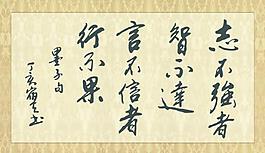 志不強者
智不達
言不信者
行不果
墨子句
丁亥
書